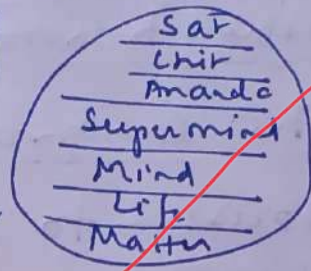 Sat
Chit
Ananda
Supermind
Mind
Life
Matter